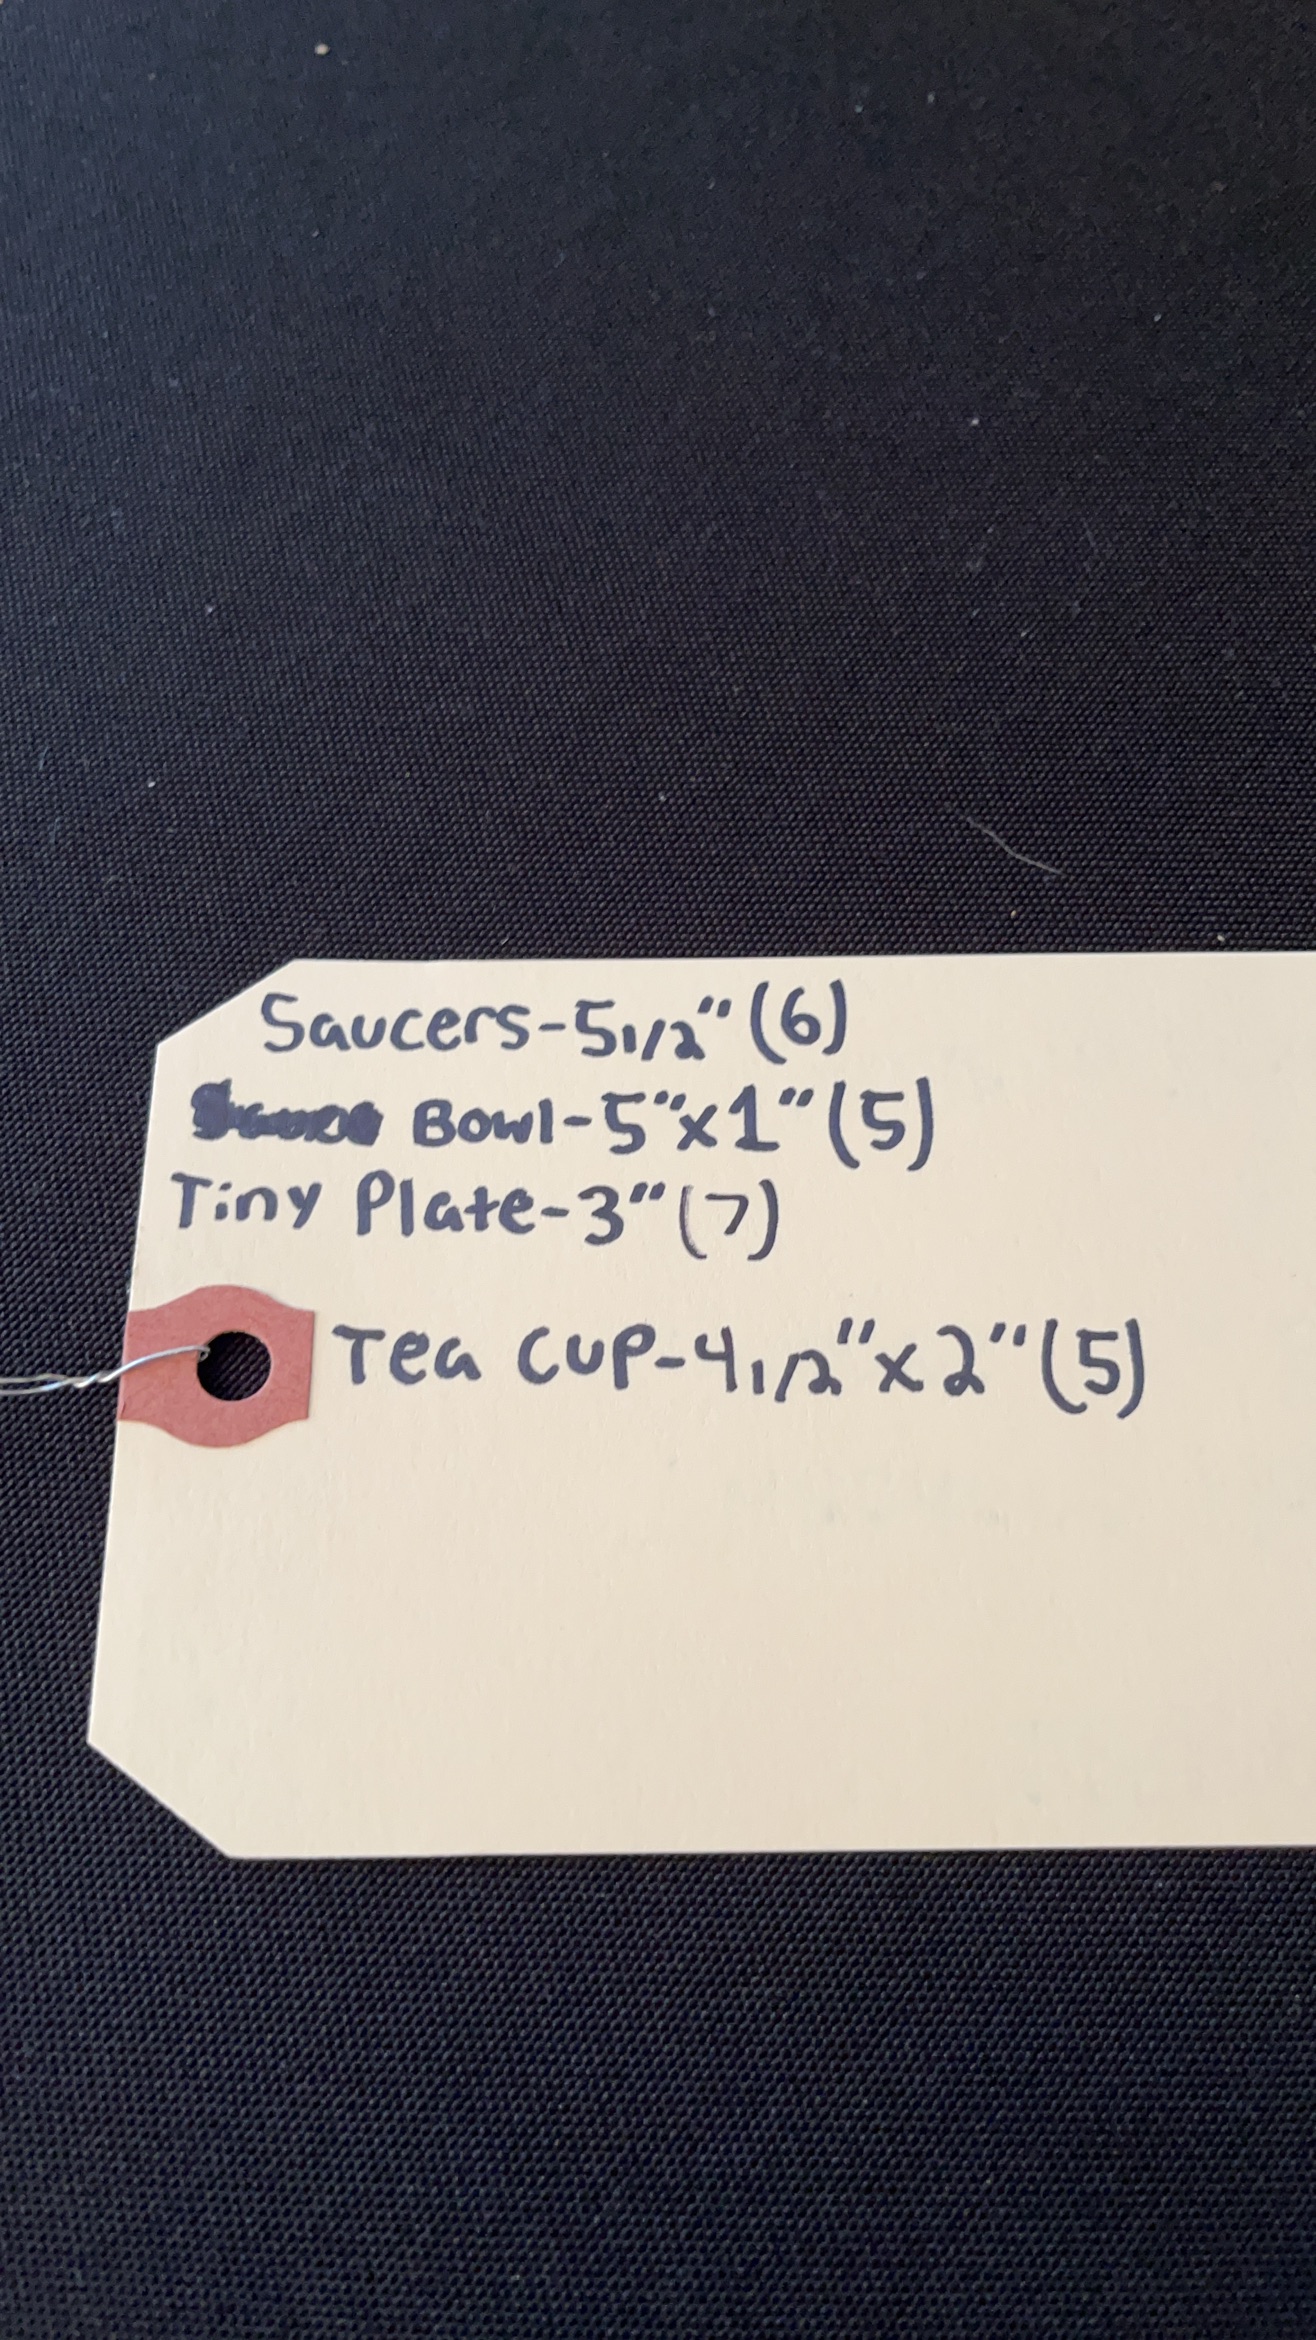 Saucers-5 1/2" (6)
Bowl-5"x1" (5)
Tiny Plate-3" (7)
Tea Cup-4 1/2"x2" (5)